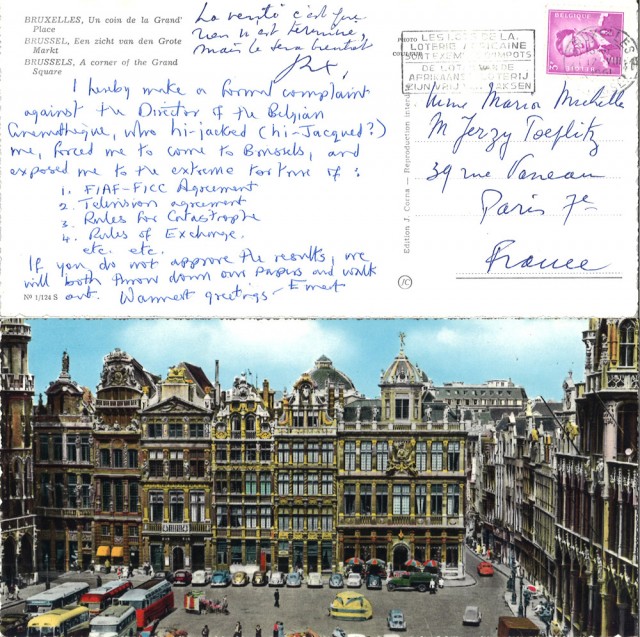 BRUXELLES, Un coin de la Grand'
Place
BRUSSEL, Een zicht van den Grote
Markt
BRUSSELS, A corner of the Grand
Square
La vérité c'est que
rien n'est terminé,
mais le sera bientôt
I hereby make a formal complaint
against the Director of the Belgian
Cinematheque, who hi-jacked (hi-Jacqued?)
me, forced me to come to Brussels, and
exposed me to the extreme torture of:
1. FIAF-FICC Agreement
2. Television agreement
3. Rules for Catastrophe
4. Rules of Exchange.
etc. etc.
If you do not approve the results, we
will both throw down our papers and walk
out. Warmest greetings - Ernest
Nº 1/124 S
PHOTO
COULEUR
Edition J. Corna — Reproduction interdite
LES LOTS DE LA
LOTERIE AFRICAINE
SONT EXEMPTS D'IMPOTS
DE LOTEN VAN DE
AFRIKAANSE LOTERIJ
ZIJN VRIJ VAN TAKSEN
BELGIQUE
BELGIE
Mme Marion Michelle
M Jerzy Toeplitz
39 rue Vaneau
Paris 7e
France
JC